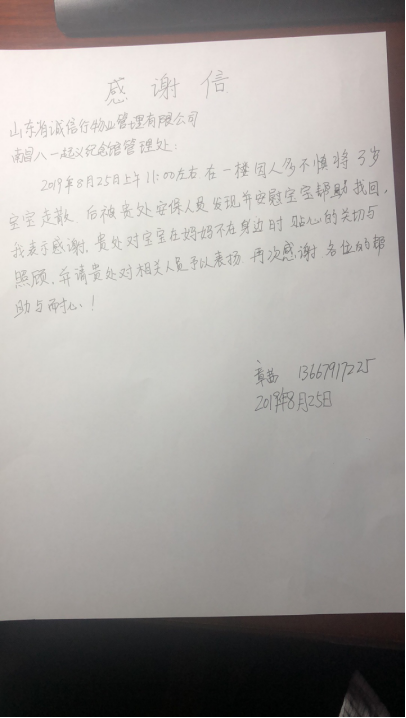 感谢信
山东省诚信行物业管理有限公司
南昌八一起义纪念馆管理处：
2019年8月25日上午11:00左右 在一楼因人多不慎将3岁
宝宝走散 后被贵处安保人员发现并安慰宝宝帮助找回,
我表示感谢. 贵处对宝宝在妈妈不在身边时 贴心的关切与
照顾, 并请贵处对相关人员予以表扬 再次感谢 各位的帮
助与耐心！
章茜 13667917225
2019年8月25日